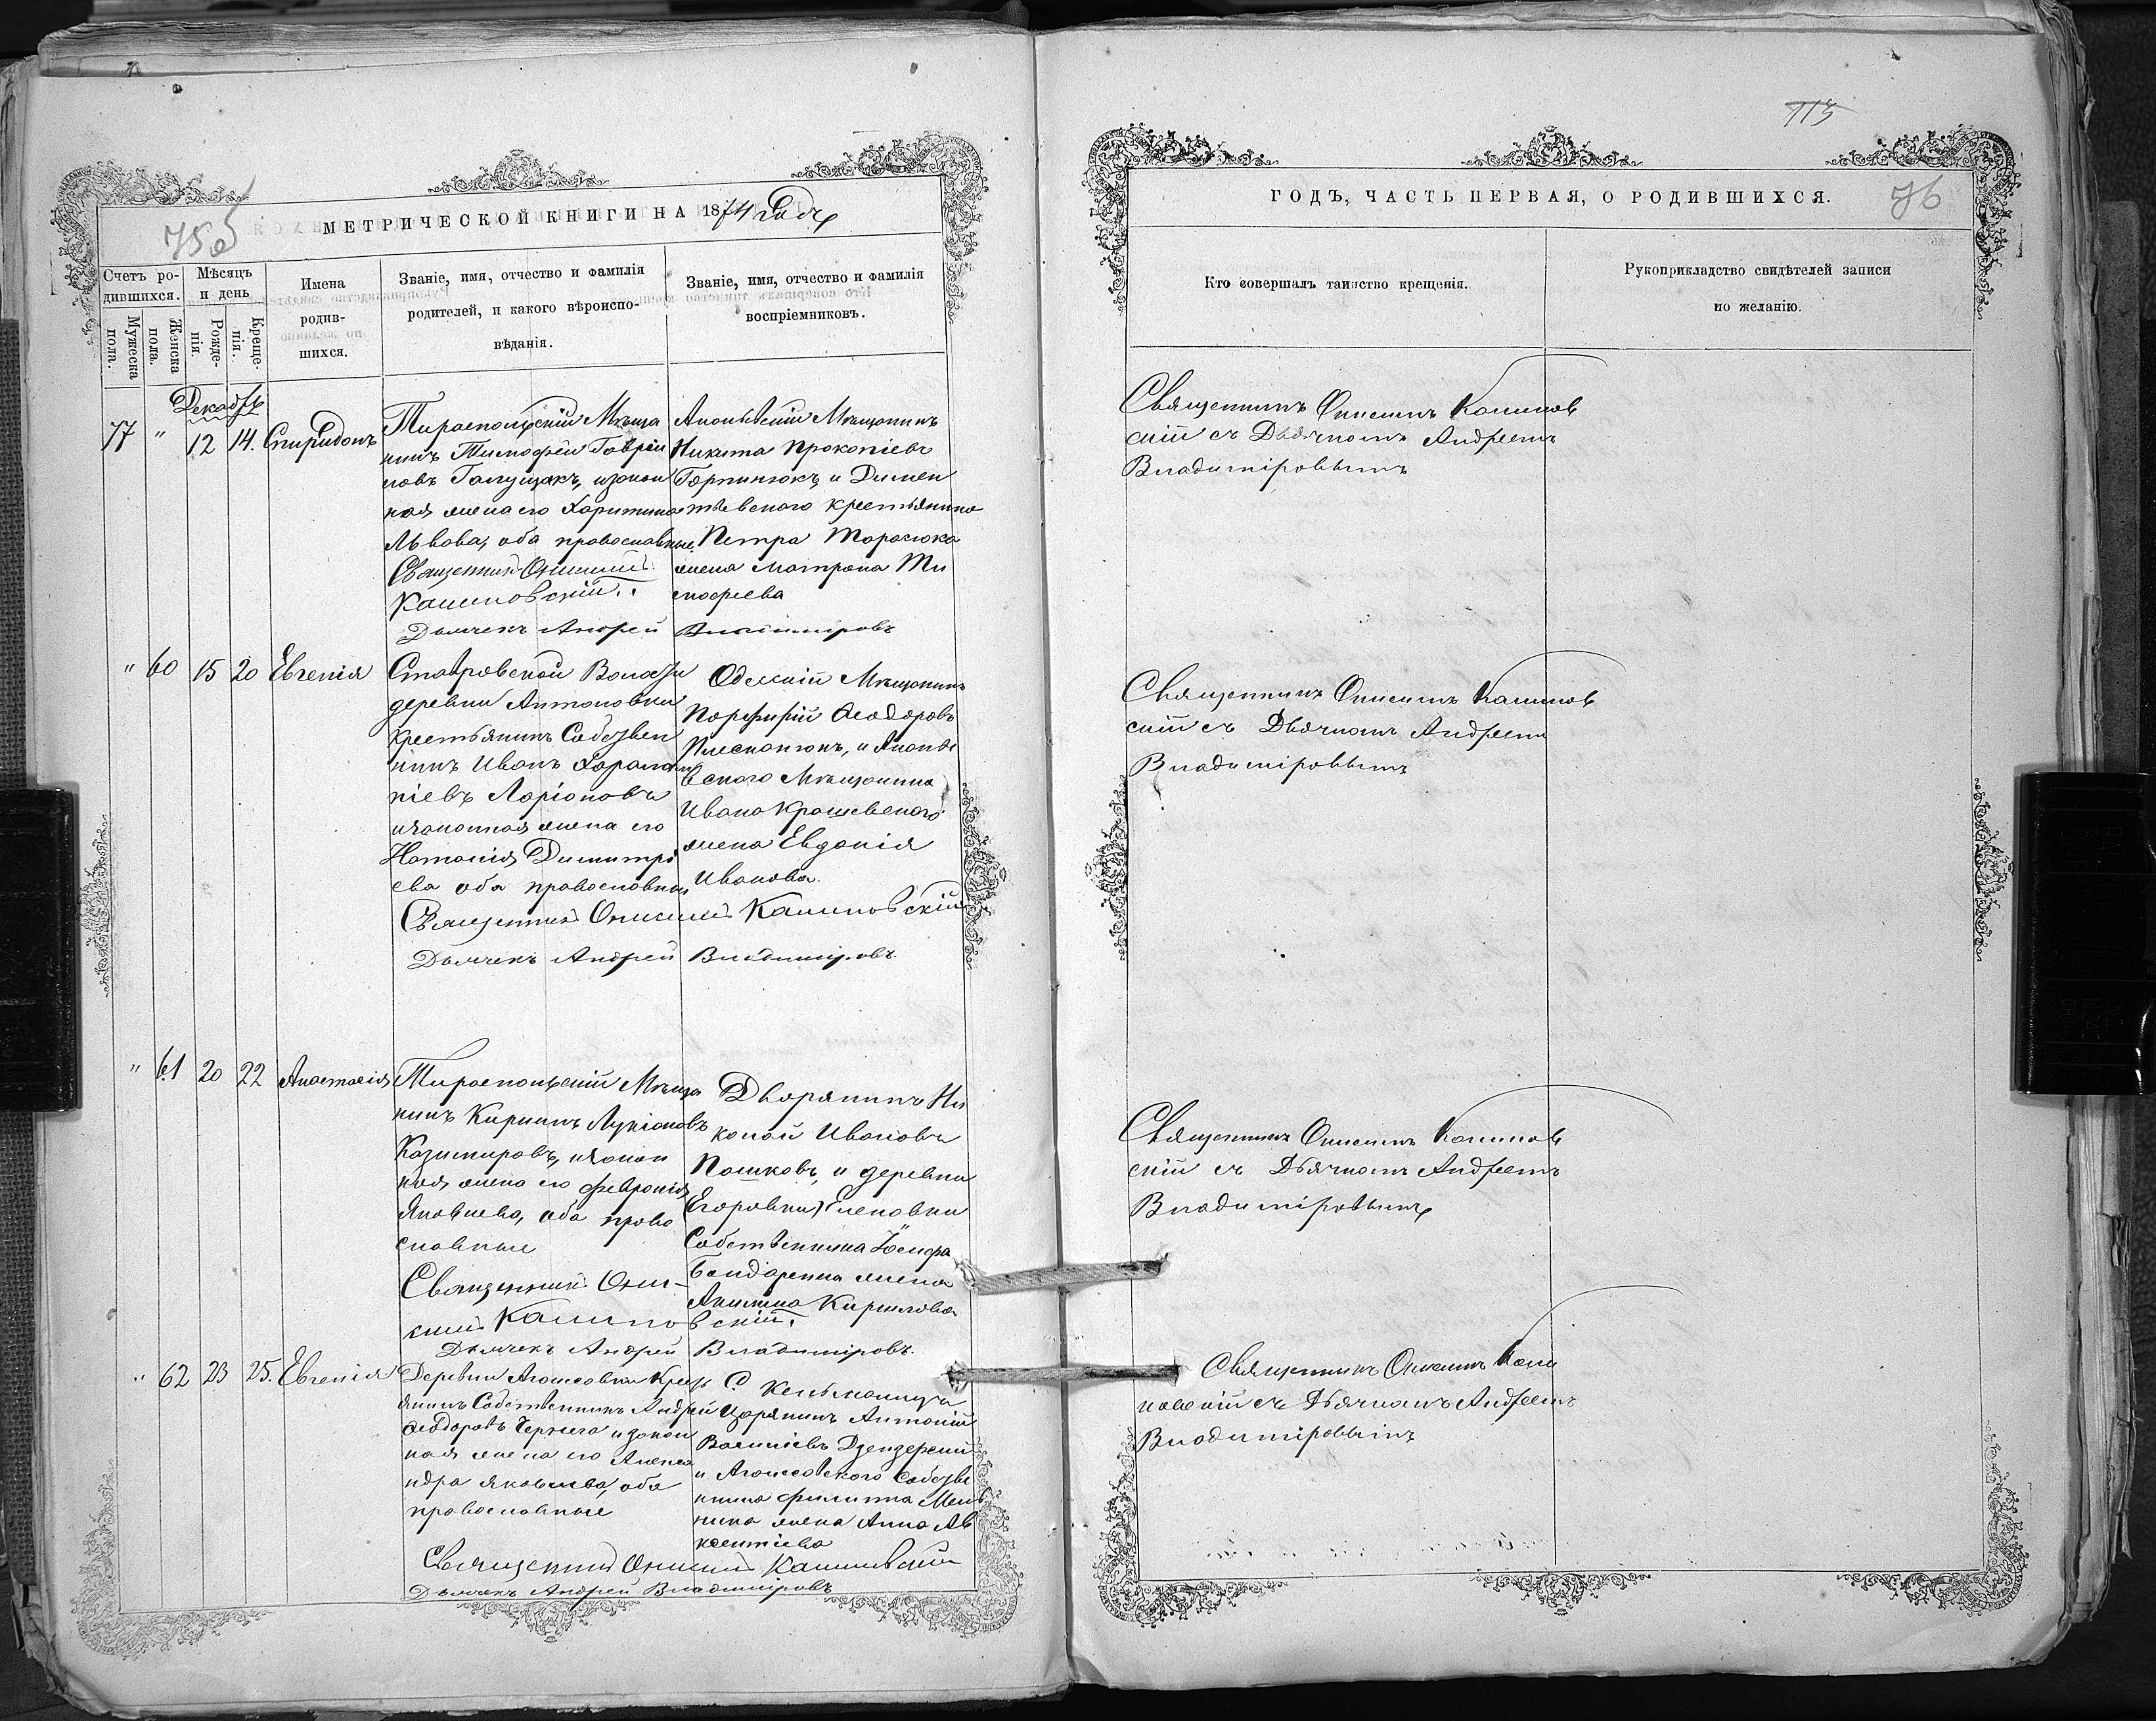 113
75об
МЕТРИЧЕСКОЙ КНИГИ НА 1874 Годъ
Счетъ ро-
дившихся.
Мужеска
пола.
Женска
пола.
Мѣсяцъ
и день
Рожде-
нія.
Креще-
нія.
Имена
родив-
шихся.
Званіе, имя, отчество и фамилія
родителей, и какого вѣроиспо-
вѣданія.
Званіе, имя, отчество и фамилія
воспріемниковъ.
Декабрь
77 " 12 14. Спиридонъ
Тираспольскій Мѣща
нинъ Тимофей Гаврии
ловъ Галущакъ, изакон
ная жена его Харитина
Львова, оба православные.
Священникъ Онисимъ
Калиновскій.
Дьячекъ Андрей Владиміровъ
Ананьевскій Мѣщанинъ
Никита Прокопіевъ
и Димен
тѣевскаго крестьянина
Петра Тарасюка
жена Матрона Ти
мофеева
" 60 15 20 Евгенія
Ставровской Волости
деревни Антоновки
Крестьянинъ Собствен
никъ Иванъ Харалам
піевъ Ларіоновъ
изаконная жена его
Наталія Димитрі
ева оба православные
Священникъ Онисимъ Калиновскій
Дьячекъ Андрей Владиміровъ.
Одесскій Мѣщанинъ
Порфирій Феодоровъ
и Ананье
вскаго Мѣщанина
Ивана Крошевскаго
жена Евдокія
Иванова.
" 61 20 22 Анастасія
Тираспольскій Мѣща
нинъ Кирилъ Лукіановъ
Казимировъ, изакон
ная жена его Февронія
Яковлева, оба право
славные
Священникъ Они-
симъ Калиновскій.
Дьячекъ Андрей Владиміровъ.
Дворянинъ Ни
колай Ивановъ
Пашковъ, и деревни
(Егоровки) Еленовки
Собственника Іосифа
Бондаренка жена
Акилина Кирилова
" 62 23 25. Евгенія
Деревни Агашовки Крест
янинъ Собственникъ Андрей
Феодоровъ Чернега изакон
ная жена его Алекса
ндра Яковлева, оба
православные
Священникъ Онисимъ Калиновскій
Дьячекъ Андрей Владиміровъ
С.
Царянинъ Антоній
Василіевъ Дзендзерскій
и Агашовскаго Собстве
нника Филиппа Мель
ника жена Анна Ав
ксентіева
ГОДЪ, ЧАСТЬ ПЕРВАЯ, О РОДИВШИХСЯ.
76
Кто совершалъ таинство крещенія.
Рукоприкладство свидѣтелей записи
по желанію.
Священникъ Онисимъ Калинов
скій съ Дьячкомъ Андреемъ
Владиміровымъ
Священникъ Онисимъ Калинов
скій съ Дьячкомъ Андреемъ
Владиміровымъ
Священникъ Онисимъ Калинов
скій съ Дьячкомъ Андреемъ
Владиміровымъ
Священникъ Онисимъ Кали
новскій съ Дьячкомъ Андреемъ
Владиміровымъ